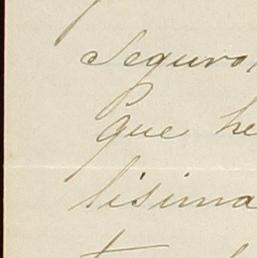 Seguro,
que he
lísima